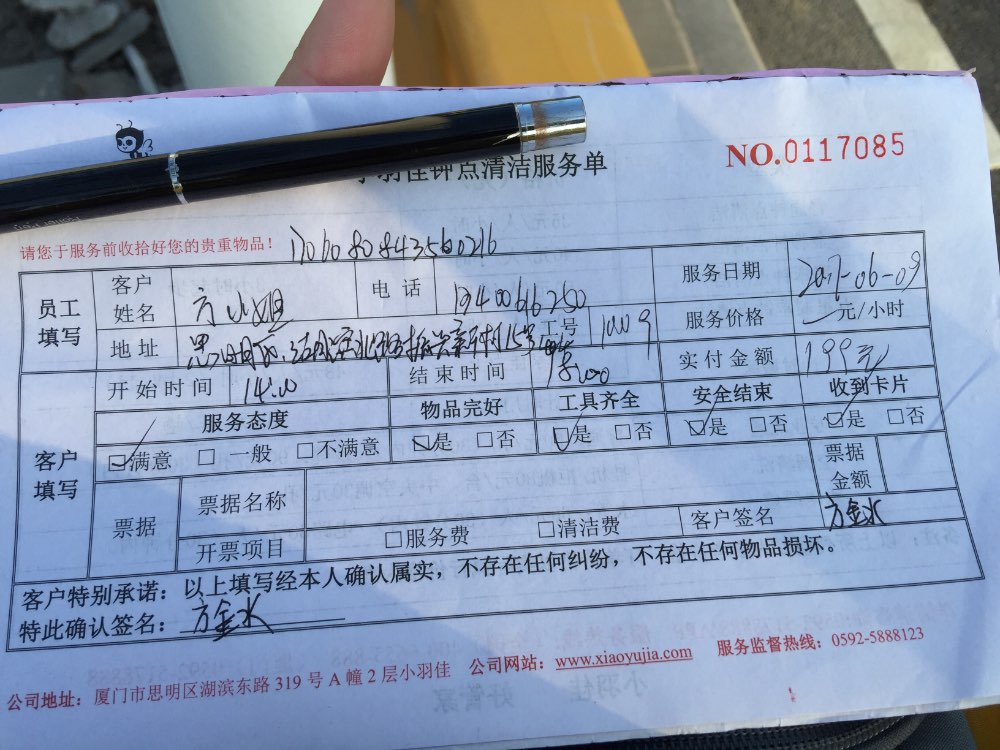 羽佳钟点清洁服务单
NO.0117085
请您于服务前收拾好您的贵重物品！
员工填写 客户姓名 方小姐 电话 服务日期 2017-06-09
地址 工号 1009 服务价格 元/小时
客户填写 开始时间 14:00 结束时间 18:00 实付金额 199元
服务态度 物品完好 工具齐全 安全结束 收到卡片
☑满意 □一般 □不满意 ☑是 □否 ☑是 □否 ☑是 □否 ☑是 □否
票据 票据名称 票据金额
开票项目 □服务费 □清洁费 客户签名 方金水
客户特别承诺：以上填写经本人确认属实，不存在任何纠纷，不存在任何物品损坏。
特此确认签名：方金水
公司地址：厦门市思明区湖滨东路 319 号 A 幢 2 层小羽佳 公司网站：www.xiaoyujia.com 服务监督热线：0592-5888123